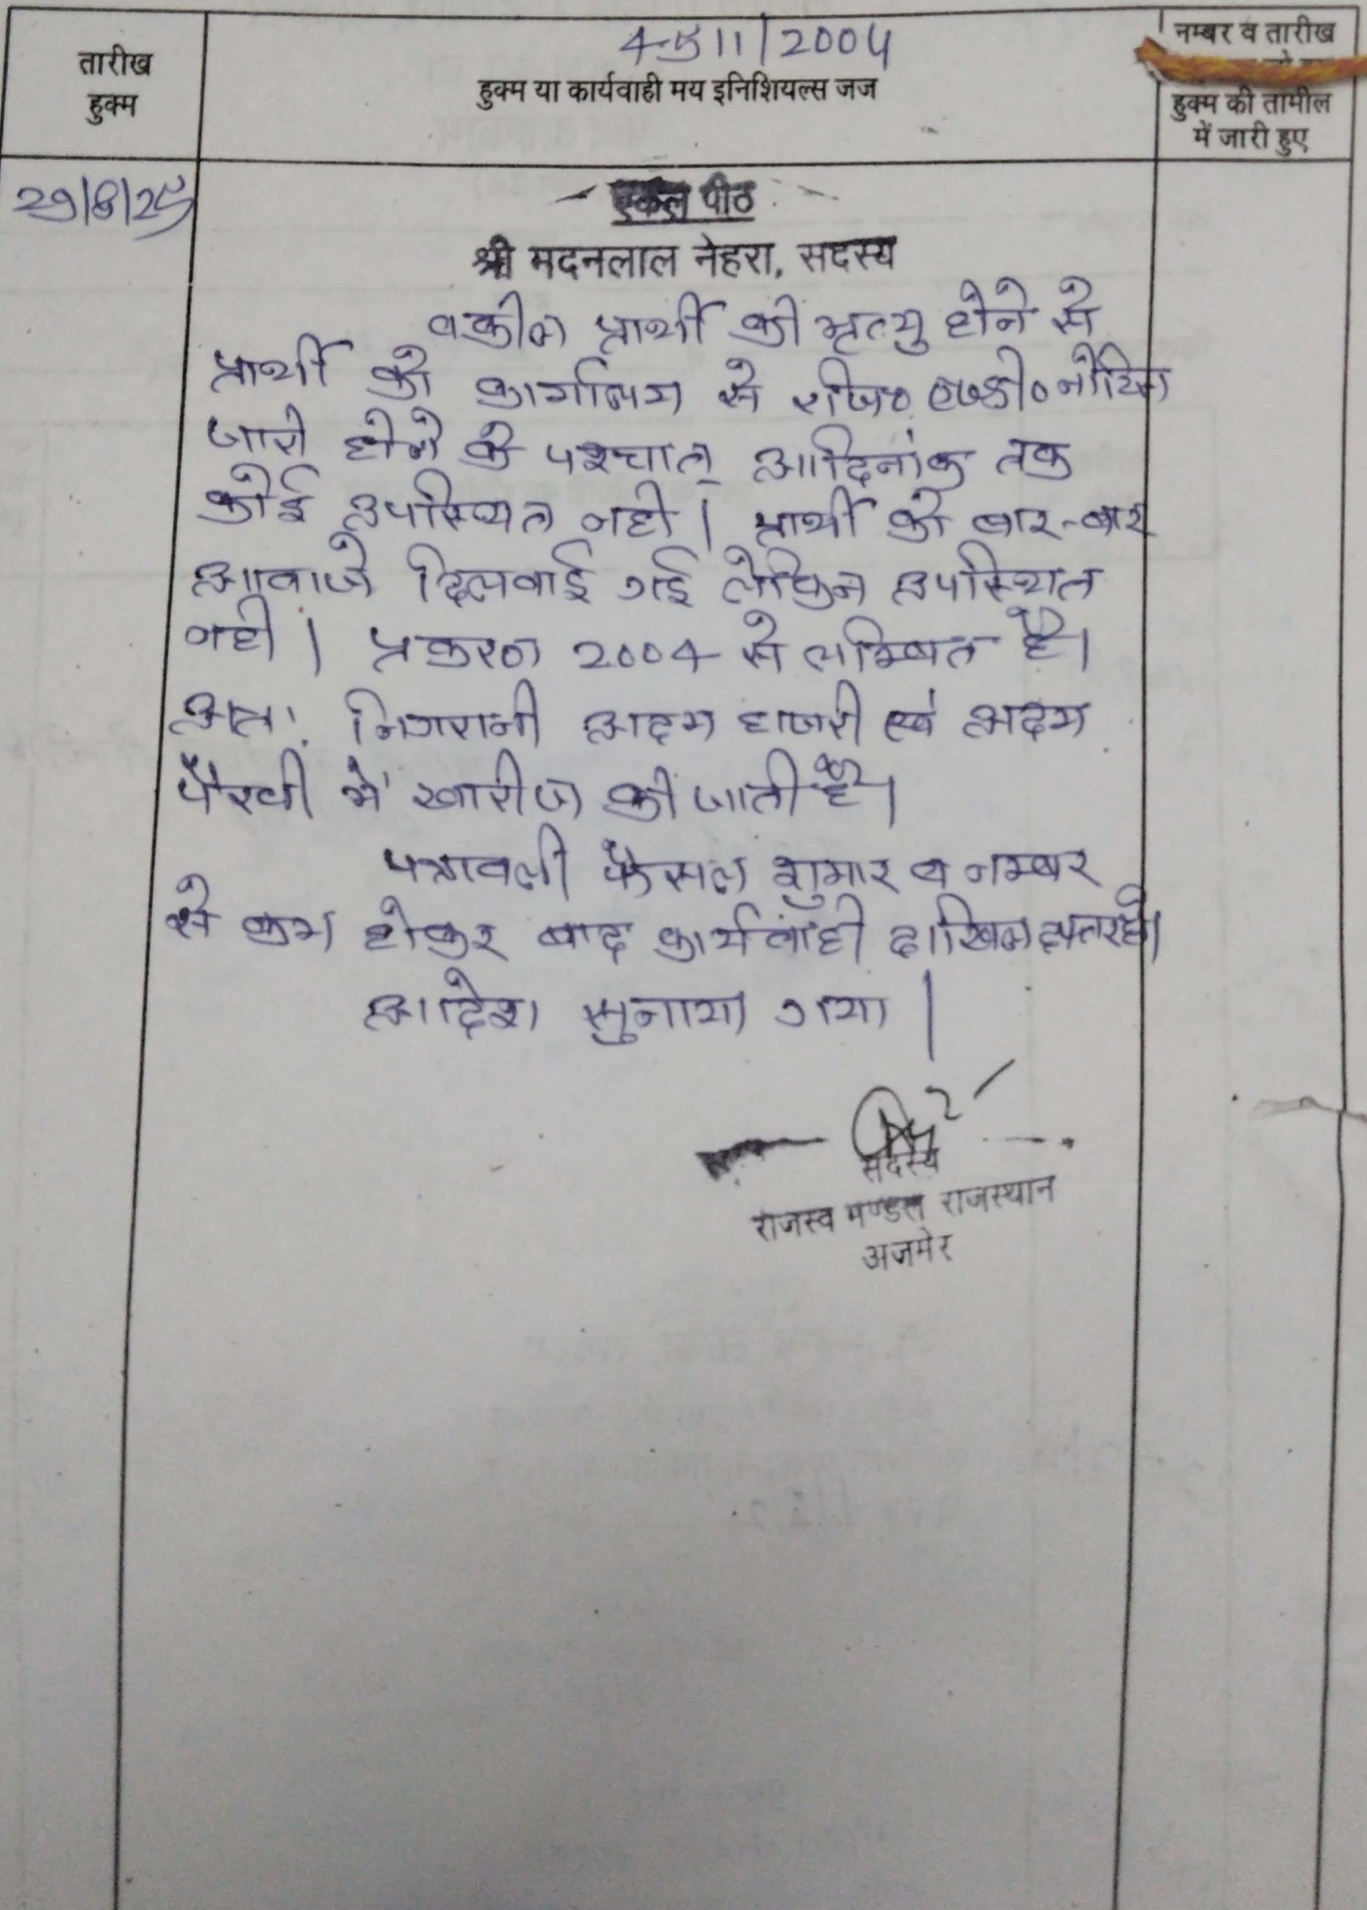 तारीख
हुक्म
4511/2004
हुक्म या कार्यवाही मय इनिशियल्स जज
नम्बर व तारीख
हुक्म की तामील
में जारी हुए
29/8/25
एकल पीठ
श्री मदनलाल नेहरा, सदस्य
वकील प्रार्थी की मृत्यु होने से
प्रार्थी को कार्यालय से रजि० ए०डी० नोटिस
जारी होने के पश्चात् आदिनांक तक
कोई उपस्थित नही। प्रार्थी को बार-बार
आवाजे दिलवाई गई लेकिन उपस्थित
नही। प्रकरण 2004 से लम्बित है।
अतः निगरानी अदम हाजरी एवं अदम
पैरवी में खारीज की जाती है।
पत्रावली फैसल शुमार व नम्बर
से कम होकर बाद कार्यवाही दाखिल दफ्तर हो।
आदेश सुनाया गया।
सदस्य
राजस्व मण्डल राजस्थान
अजमेर